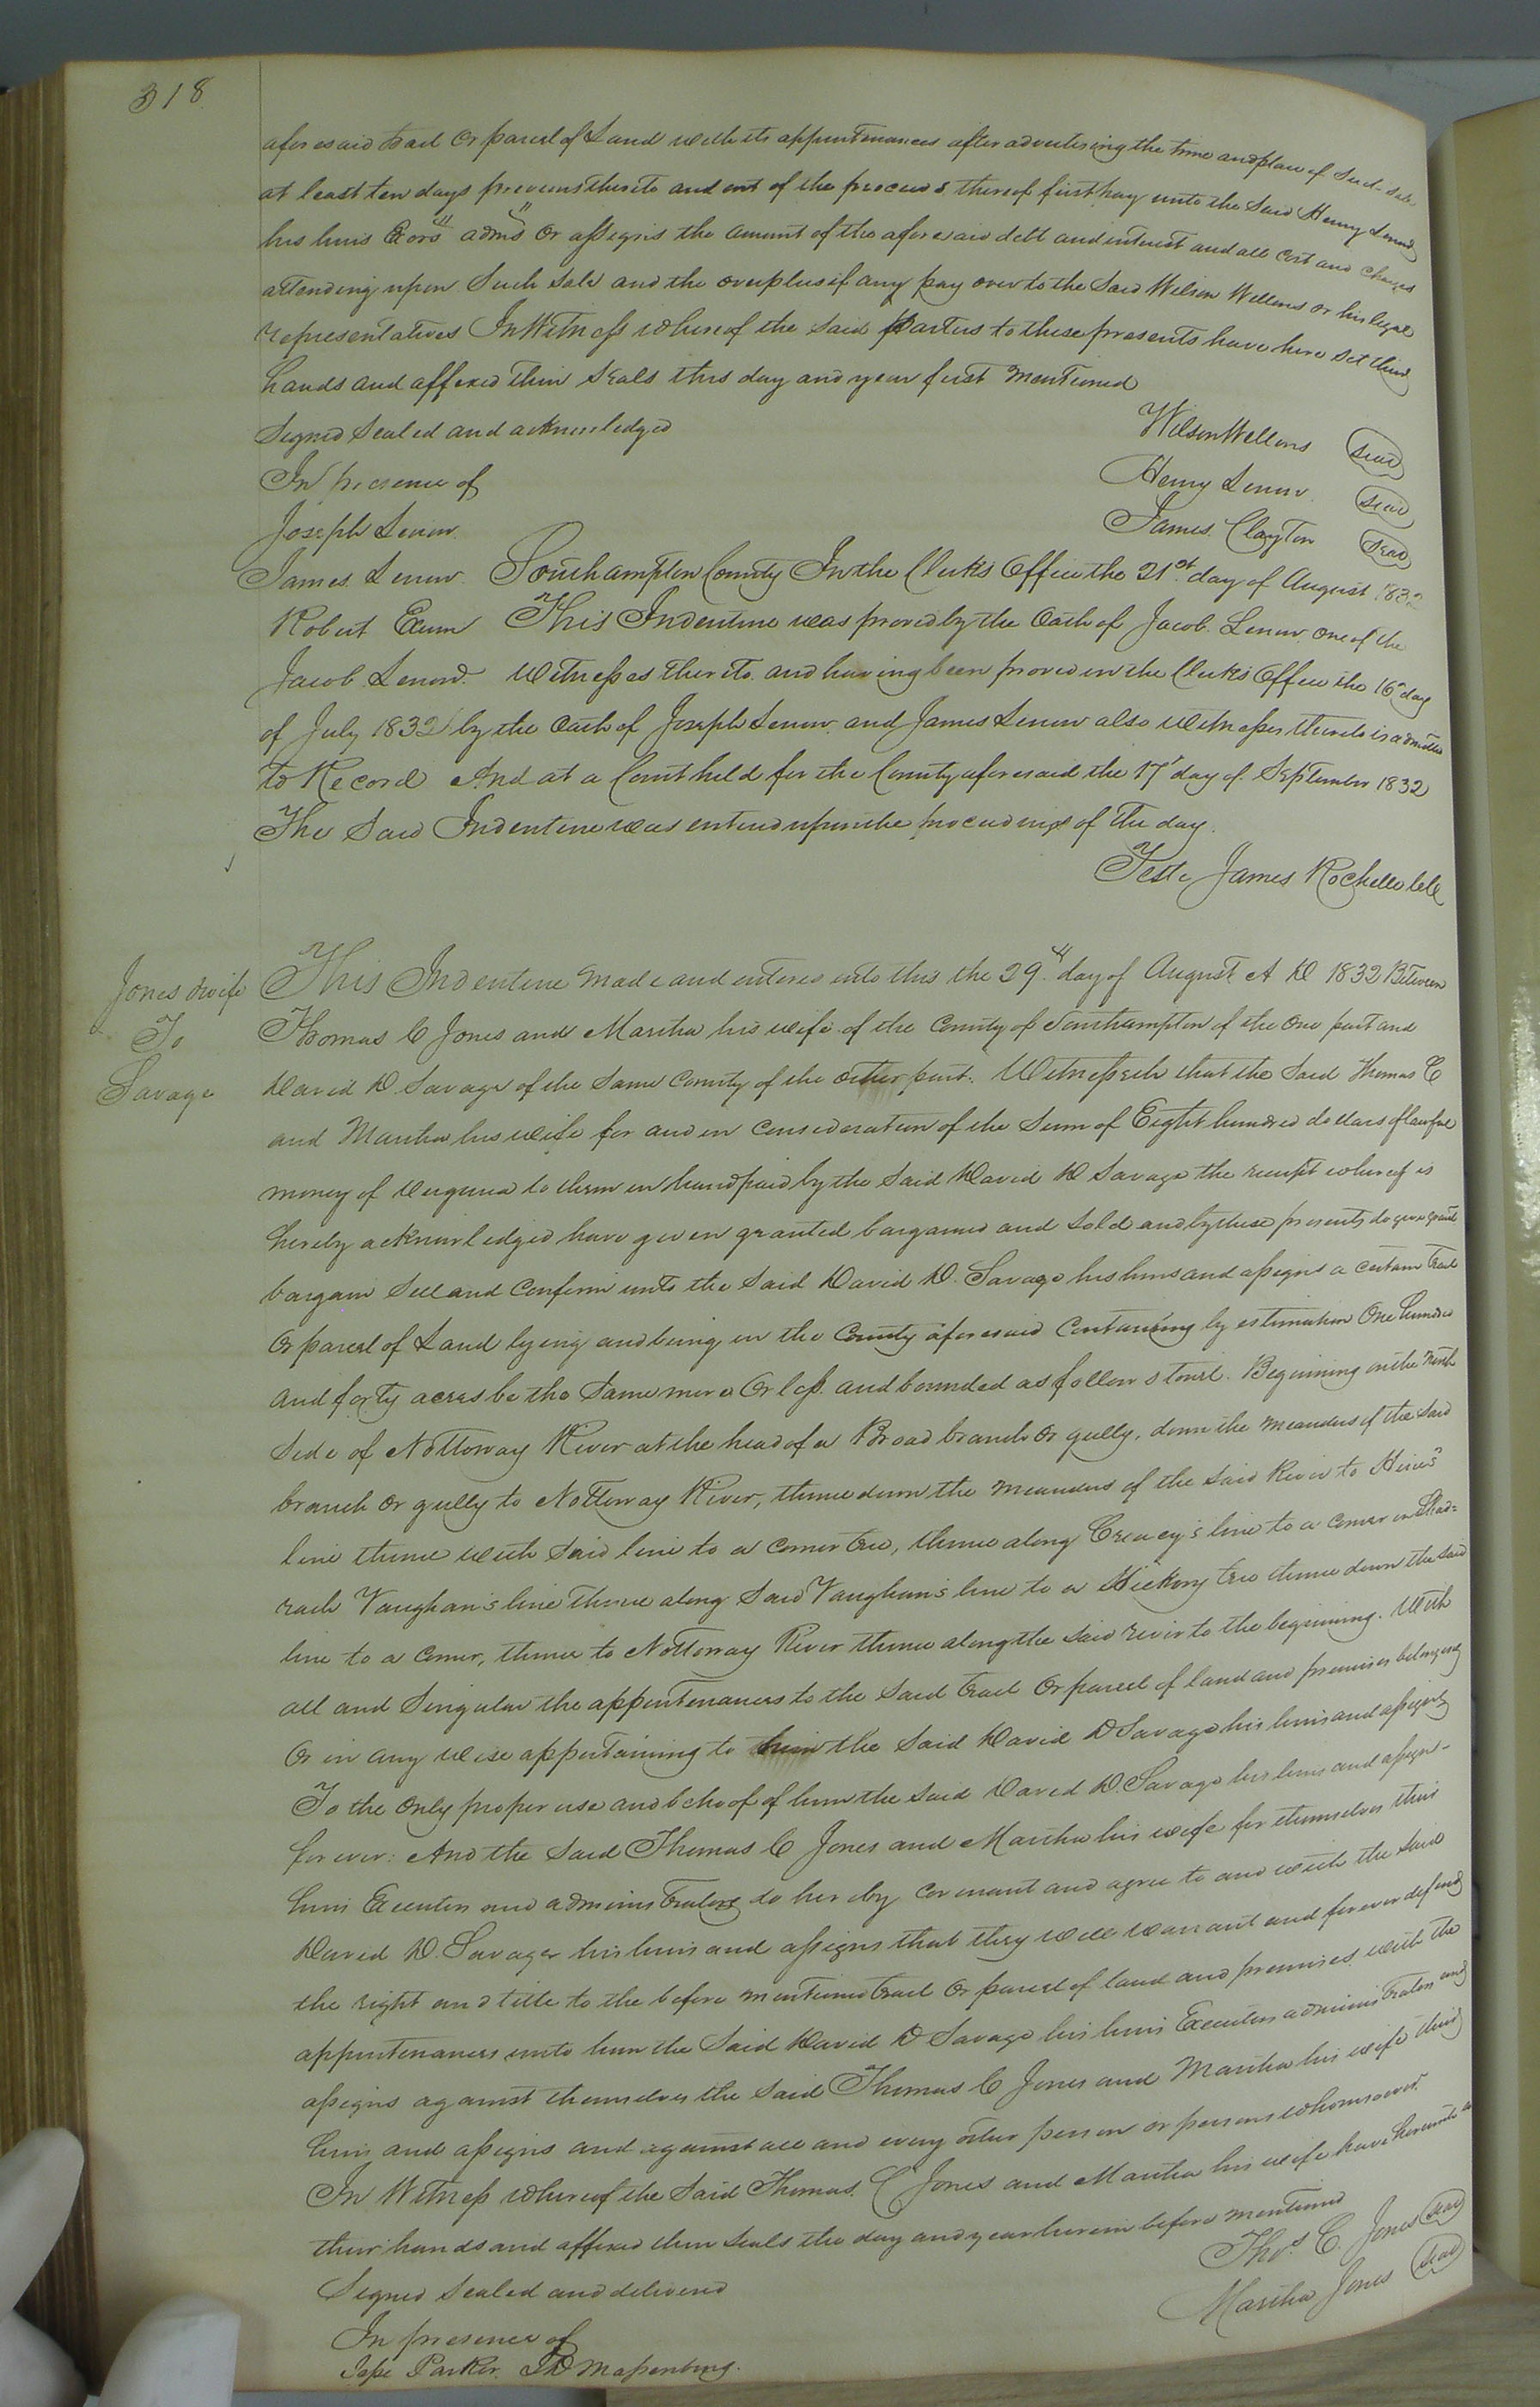 318
aforesaid tract or parcel of Land with its appurtenances after advertising the time and place of such sale
at least ten days previous thereto and out of the proceeds thereof first pay unto the Said Henry Lenow
his heirs Exors adms or assigns the amount of the aforesaid debt and interest and all cost and charges
attending upon Such Sale and the overplus if any pay over to the Said Wilson Wellons or his legal
representatives In Witness whereof the said parties to these presents have here set their
hands and affixed their Seals this day and year first mentioned
Signed Sealed and acknowledged
Wilson Wellons Seal
In presence of
Henry Lenow Seal
Joseph Lenow
James Clayton Seal
James Lenow Southampton County In the Clerks Office the 21st day of August 1832
Robert Exum This Indenture was proved by the Oath of Jacob Lenow one of the
Jacob Lenow Witnesses thereto and having been proved in the Clerks Office the 16 day
of July 1832 by the Oath of Joseph Lenow and James Lenow also Witnesses thereto is admitted
to Record And at a Court held for the County aforesaid the 17 day of September 1832
The Said Indenture was entered upon the proceedings of the day.
Teste James Rochelle Clk
Jones & wife
To
Savage
This Indenture made and entered into this the 29th day of August A D 1832 Between
Thomas C Jones and Martha his wife of the County of Southampton of the one part and
David D. Savage of the Same County of the other part. Witnesseth that the Said Thomas C
and Martha his wife for and in Consideration of the Sum of Eight hundred dollars of lawful
money of Virginia to them in hand paid by the Said David D Savage the receipt whereof is
hereby acknowledged have given granted bargained and Sold and by these presents do give grant
bargain Sell and Confirm unto the Said David D. Savage his heirs and assigns a certain tract
or parcel of Land lying and being in the County aforesaid Containing by estimation One hundred
and forty acres be the Same more Or less and bounded as follows towit. Beginning on the North
Side of Nottoway River at the head of a Broad branch or gully, down the meanders of the Said
branch or gully to Nottoway River, thence down the meanders of the Said River to Hines's
line thence with Said line to a corner tree, thence along Creacy's line to a corner in Shad=
rach Vaughan's line thence along Said Vaughan's line to a Hickory tree thence down the Said
line to a corner, thence to Nottoway River thence along the Said river to the beginning. With
all and Singular the appurtenances to the Said tract or parcel of land and premises belonging
Or in any wise appertaining to him the Said David D Savage his heirs and assigns
To the Only proper use and behoof of him the Said David D. Savage his heirs and assigns
for ever: And the Said Thomas C Jones and Martha his wife for themselves their
heirs Executors and administrators do hereby covenant and agree to and with the Said
David D. Savage his heirs and assigns that they will warrant and forever defend
the right and title to the before mentioned tract or parcel of land and premises with the
appurtenances unto him the Said David D Savage his heirs Executors administrators and
assigns against themselves the Said Thomas C Jones and Martha his wife their
heirs and assigns and against all and every other person or persons whomsoever.
In Witness whereof the Said Thomas C Jones and Martha his wife have hereunto
their hands and affixed their Seals the day and year herein before mentioned
Signed Sealed and delivered
Thos. C. Jones Seal
Martha Jones Seal
In presence of
Jesse Parker. Massenburg.